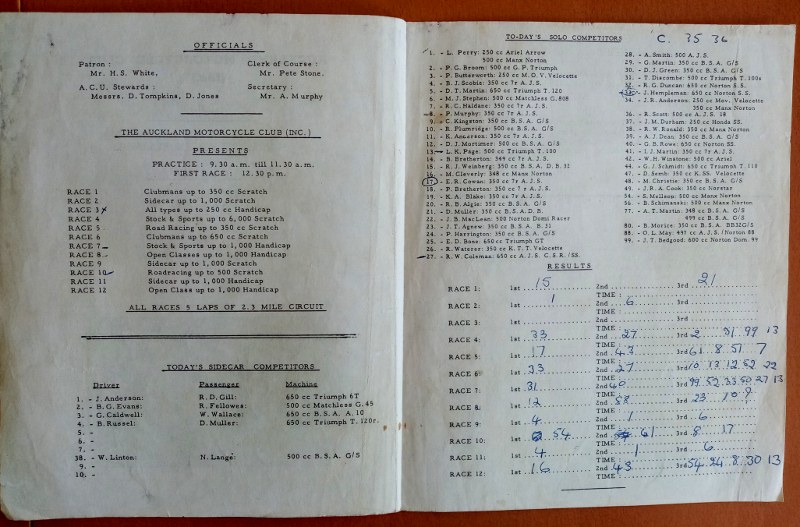 OFFICIALS
Patron :
Mr. H.S. White,
Clerk of Course :
Mr. Pete Stone.
A.C.U. Stewards :
Messrs. D. Tompkins, D. Jones
Secretary :
Mr. A. Murphy
THE AUCKLAND MOTORCYCLE CLUB (INC.)
PRESENTS
PRACTICE : 9.30 a.m. till 11.30 a.m.
FIRST RACE : 12.30 p.m.
RACE 1 Clubmans up to 350 cc Scratch
RACE 2 Sidecar up to 1,000 Scratch
RACE 3 All types up to 250 cc Handicap
RACE 4 Stock & Sports up to 6,000 Scratch
RACE 5 Road Racing up to 350 cc Scratch
RACE 6 Clubmans up to 650 cc Scratch
RACE 7 Stock & Sports up to 1,000 Handicap
RACE 8 Open Classes up to 1,000 Handicap
RACE 9 Sidecar up to 1,000 Scratch
RACE 10 Roadracing up to 500 Scratch
RACE 11 Sidecar up to 1,000 Handicap
RACE 12 Open Class up to 1,000 Handicap
ALL RACES 5 LAPS OF 2.3 MILE CIRCUIT
TODAY'S SIDECAR COMPETITORS
Driver Passenger Machine
1. - J. Anderson: R.D. Gill: 650 cc Triumph 6T
2. - B.G. Evans: R. Fellowes: 500 cc Matchless G.45
3. - G. Caldwell: W. Wallace: 650 cc B.S.A. A.10
4. - B. Russel: D. Muller: 650 cc Triumph T.120r.
5. -
6. -
7. -
38. - W. Linton: N. Lange: 500 cc B.S.A. G/S
9. -
10. -
TO-DAY'S SOLO COMPETITORS
C. 35 36
1. - L. Perry: 250 cc Ariel Arrow
500 cc Manx Norton
2. - P.G. Broom: 500 cc G.P. Triumph
3. - P. Butterworth: 250 cc M.O.V. Velocette
4. - B.J. Scobie: 350 cc 7r A.J.S.
5. - D.T. Martin: 650 cc Triumph T.120
6. - M.J. Stephen: 500 cc Matchless G.80S
7. - R.C. Haldane: 350 cc 7r A.J.S.
8. - P. Murphy: 350 cc 7r A.J.S.
9. - C. Kingston: 350 cc B.S.A. G/S
10. - R. Plumridge: 500 cc Manx Norton
11. - K. Anderson: 350 cc 7r A.J.S.
12. - D.J. Mortimer: 500 cc B.S.A. G/S
13. - L.K. Page: 500 cc Triumph T.100
14. - B. Bretherton: 349 cc 7r A.J.S.
15. - R.J. Weinberg: 350 cc B.S.A. B.32
16. - M. Cleverly: 348 cc Manx Norton
17. - E.R. Cowan: 350 cc 7r A.J.S.
18. - P. Bretherton: 350 cc 7r A.J.S.
19. - K.A. Blake: 350 cc 7r A.J.S.
20. - R.D. Algie: 500 cc B.S.A. G/S
21. - D. Muller: 350 cc B.S.A.
22. - J.B. MacLean: 500 Norton Domi Racer
23. - J.T. Agnew: 350 cc B.S.A. B.31
24. - P. Herrington: 350 cc B.S.A. G/S
25. - E.D. Bone: 650 cc Triumph GT
26. - R. Waters: 350 cc K.T.T. Velocette
27. - R.W. Coleman: 650 cc A.J.S. C.S.R./SS.
28. - A. Smith: 500 A.J.S.
29. - G. Martin: 350 cc B.S.A. G/S
30. - D.J. Green: 350 cc B.S.A. G/S
31. - T. Discombe: 500 cc Triumph T.100s
32. - R.G. Duncan: 650 cc Norton S.S.
33. - J. Hemplemas: 650 cc Norton S.S.
34. - J.R. Anderson: 250 cc Mov. Velocette
350 cc Manx Norton
36. - R. Scott: 500 cc A.J.S. 18
37. - J.M. Durham: 250 cc Honda SS.
38. - R.W. Ronald: 350 cc Manx Norton
39. - A.J. Dean: 350 cc B.S.A. G/S
40. - G.B. Rowe: 650 cc Norton SS.
41. - I.J. Martin: 350 cc 7r A.J.S.
42. - W.H. Winstone: 500 cc Ariel
44. - G.J. Schmidt: 650 cc Triumph T.110
47. - D. Semb: 350 cc K.SS. Velocette
48. - M. Christie: 350 cc B.S.A. G/S
49. - J.R.A. Cook: 350 cc Norstar
54. - E. McLeon: 500 cc Manx Norton
56. - B. Schimanski: 500 cc Manx Norton
77. - A.T. Martin: 348 cc B.S.A. G/S
499 cc B.S.A. G/S
80. - B. Morice: 350 cc B.S.A. BB32G/S
88. - O.L. May: 497 cc A.J.S./Norton 88
99. - J.T. Bedgood: 600 cc Norton Dom. 99
RESULTS
RACE 1: 1st 15 2nd 3rd 21
TIME :
RACE 2: 1st 1 2nd 6 3rd
TIME :
RACE 3: 1st 2nd 3rd
TIME :
RACE 4: 1st 33 2nd 27 3rd 2 31 99 13
TIME :
RACE 5: 1st 17 2nd 43 3rd 61 8 51 7
TIME :
RACE 6: 1st 33 2nd 27 3rd 10 13 12 52 22
TIME :
RACE 7: 1st 31 2nd 40 3rd 99 52 33 50 27 13
TIME :
RACE 8: 1st 12 2nd 58 3rd 23 10 9
TIME :
RACE 9: 1st 4 2nd 1 3rd 6
TIME :
RACE 10: 1st 54 2nd 61 3rd 8 17
TIME :
RACE 11: 1st 4 2nd 1 3rd 6
TIME :
RACE 12: 1st 16 2nd 43 3rd 54 34 8 30 13
TIME :